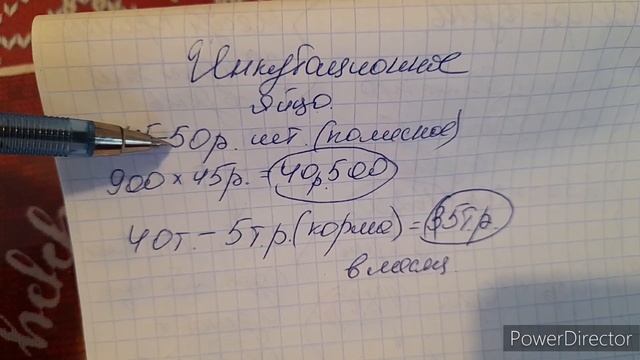 Инкубационное
яйцо.
50р. шт. (помесное)
900 × 45р. = 40р.500
40т. – 5т.р. (корма) = 35т.р.
в месяц.
PowerDirector